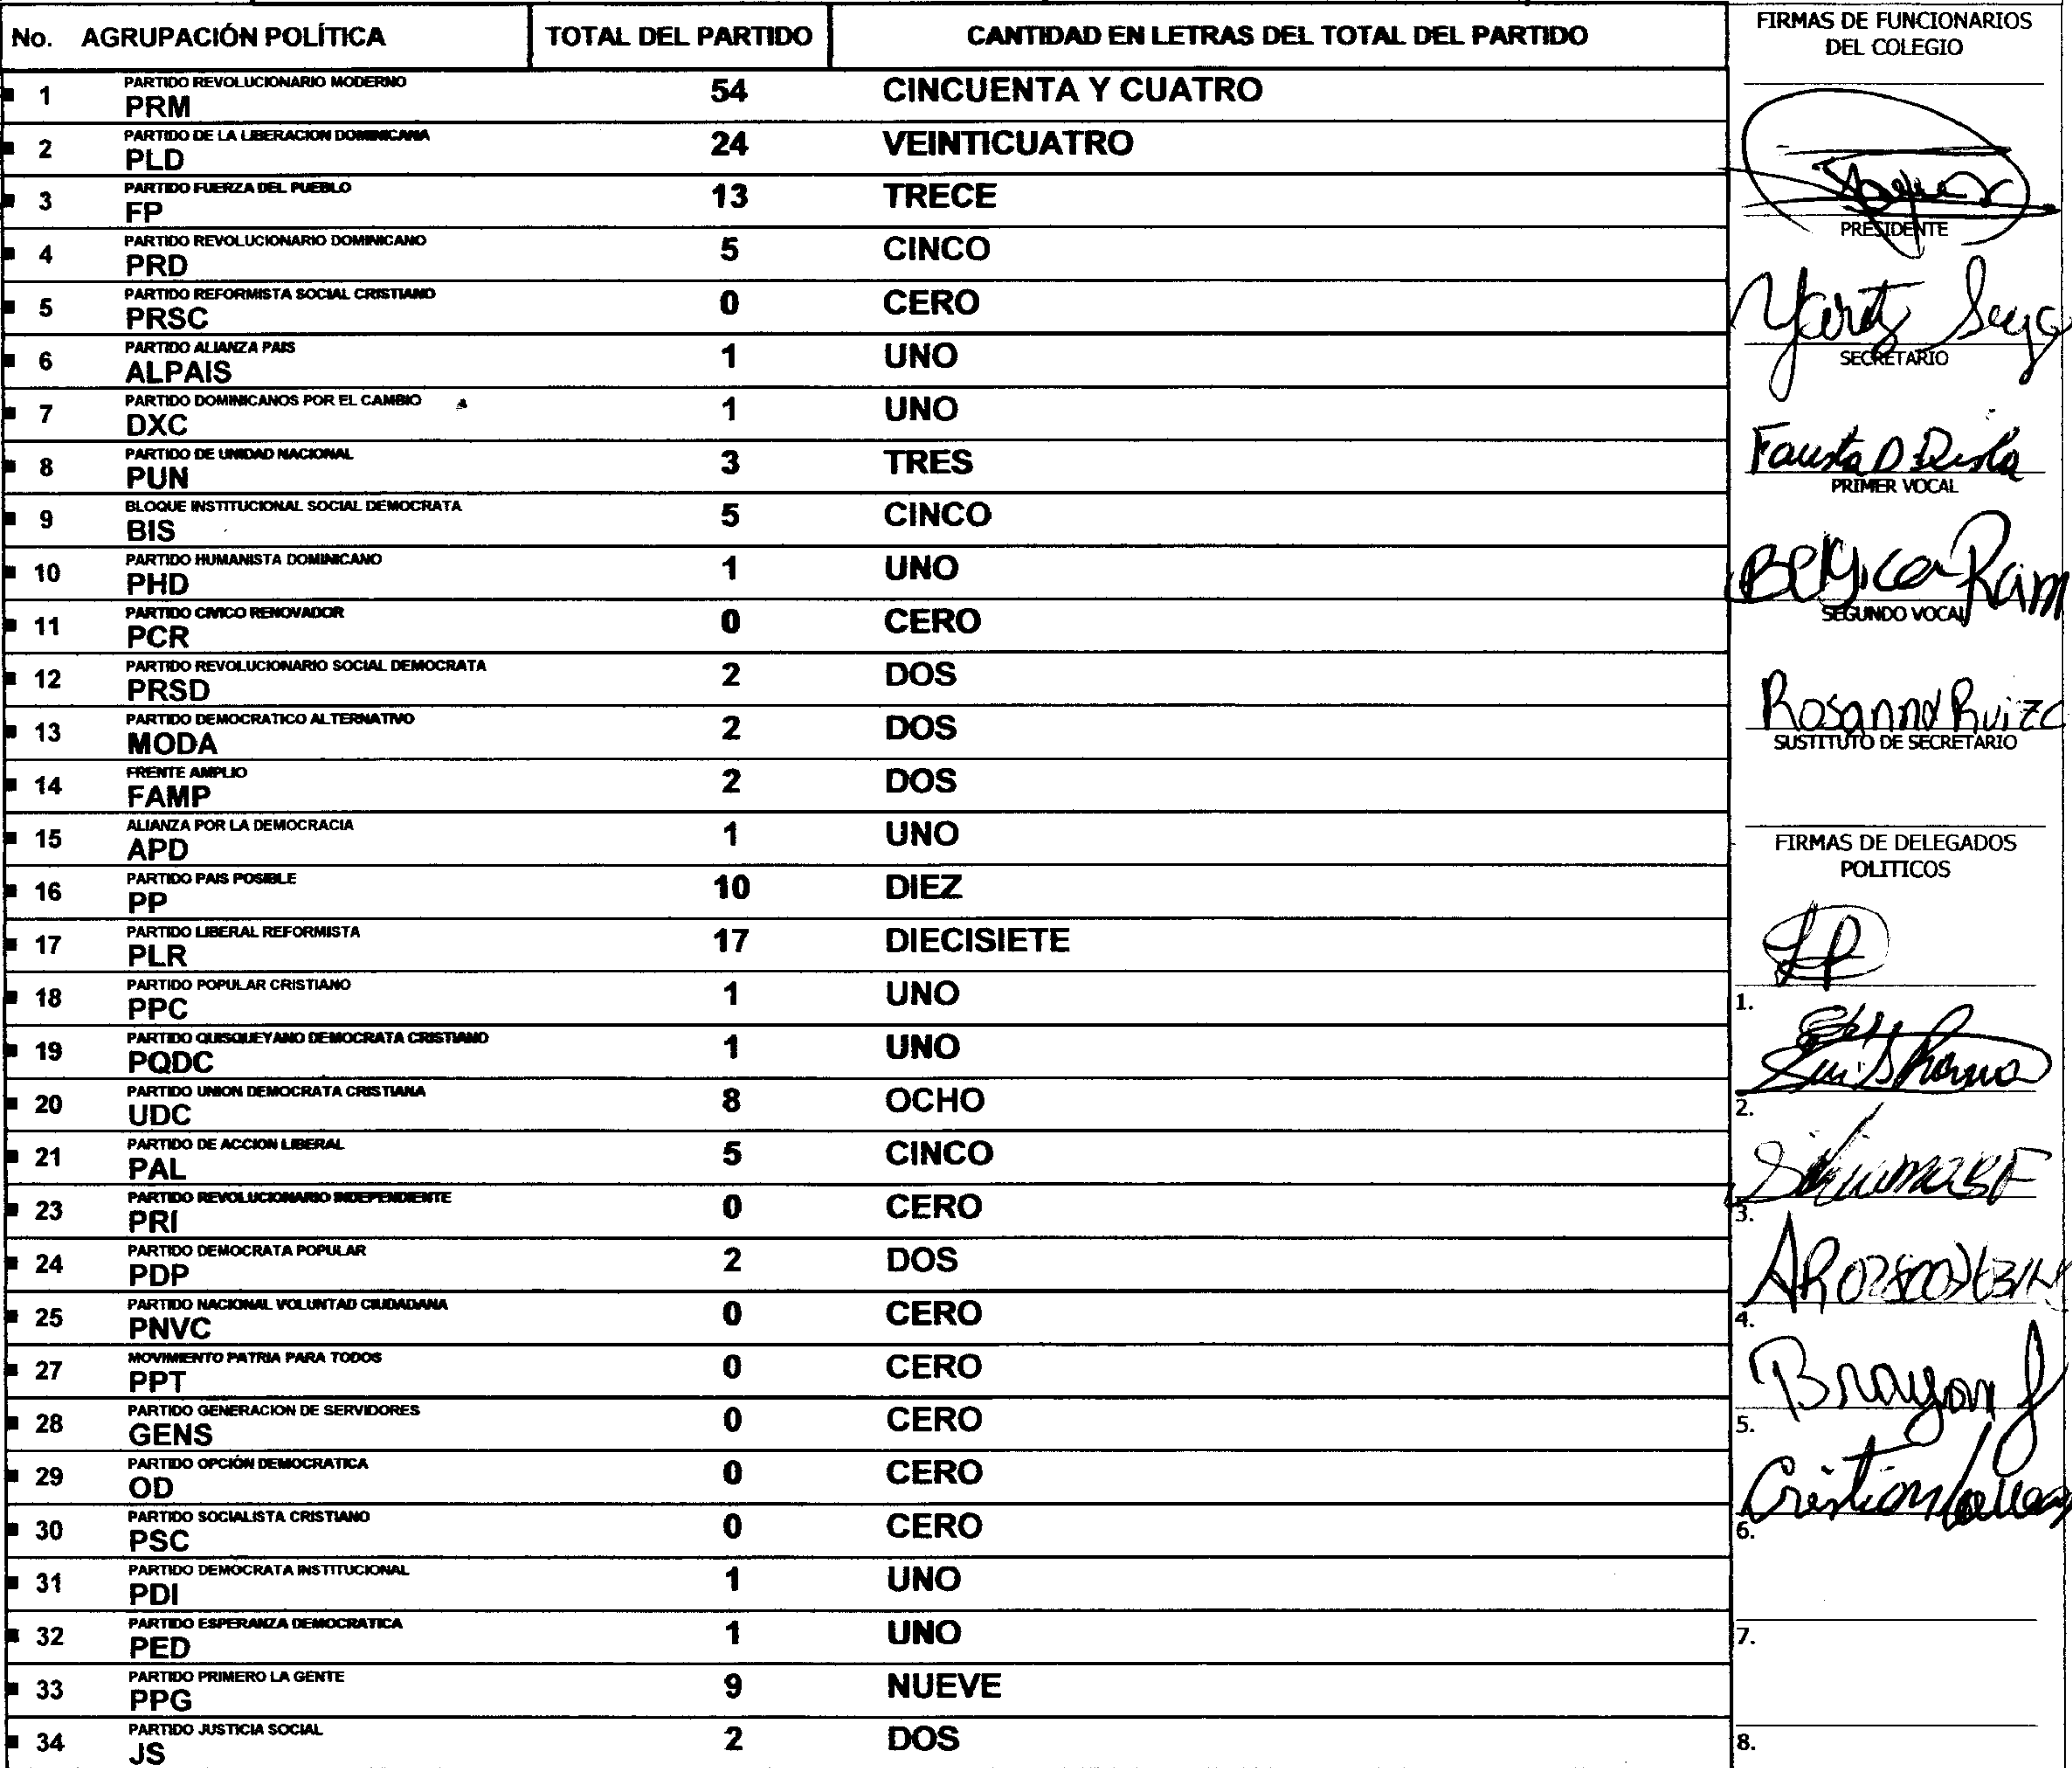 No. AGRUPACIÓN POLÍTICA TOTAL DEL PARTIDO CANTIDAD EN LETRAS DEL TOTAL DEL PARTIDO
1 PARTIDO REVOLUCIONARIO MODERNO
PRM 54 CINCUENTA Y CUATRO
2 PARTIDO DE LA LIBERACION DOMINICANA
PLD 24 VEINTICUATRO
3 PARTIDO FUERZA DEL PUEBLO
FP 13 TRECE
4 PARTIDO REVOLUCIONARIO DOMINICANO
PRD 5 CINCO
5 PARTIDO REFORMISTA SOCIAL CRISTIANO
PRSC 0 CERO
6 PARTIDO ALIANZA PAIS
ALPAIS 1 UNO
7 PARTIDO DOMINICANOS POR EL CAMBIO
DXC 1 UNO
8 PARTIDO DE UNIDAD NACIONAL
PUN 3 TRES
9 BLOQUE INSTITUCIONAL SOCIAL DEMOCRATA
BIS 5 CINCO
10 PARTIDO HUMANISTA DOMINICANO
PHD 1 UNO
11 PARTIDO CIVICO RENOVADOR
PCR 0 CERO
12 PARTIDO REVOLUCIONARIO SOCIAL DEMOCRATA
PRSD 2 DOS
13 PARTIDO DEMOCRATICO ALTERNATIVO
MODA 2 DOS
14 FRENTE AMPLIO
FAMP 2 DOS
15 ALIANZA POR LA DEMOCRACIA
APD 1 UNO
16 PARTIDO PAIS POSIBLE
PP 10 DIEZ
17 PARTIDO LIBERAL REFORMISTA
PLR 17 DIECISIETE
18 PARTIDO POPULAR CRISTIANO
PPC 1 UNO
19 PARTIDO QUISQUEYANO DEMOCRATA CRISTIANO
PQDC 1 UNO
20 PARTIDO UNION DEMOCRATA CRISTIANA
UDC 8 OCHO
21 PARTIDO DE ACCION LIBERAL
PAL 5 CINCO
23 PARTIDO REVOLUCIONARIO INDEPENDIENTE
PRI 0 CERO
24 PARTIDO DEMOCRATA POPULAR
PDP 2 DOS
25 PARTIDO NACIONAL VOLUNTAD CIUDADANA
PNVC 0 CERO
27 MOVIMIENTO PATRIA PARA TODOS
PPT 0 CERO
28 PARTIDO GENERACION DE SERVIDORES
GENS 0 CERO
29 PARTIDO OPCIÓN DEMOCRATICA
OD 0 CERO
30 PARTIDO SOCIALISTA CRISTIANO
PSC 0 CERO
31 PARTIDO DEMOCRATA INSTITUCIONAL
PDI 1 UNO
32 PARTIDO ESPERANZA DEMOCRATICA
PED 1 UNO
33 PARTIDO PRIMERO LA GENTE
PPG 9 NUEVE
34 PARTIDO JUSTICIA SOCIAL
JS 2 DOS
FIRMAS DE FUNCIONARIOS
DEL COLEGIO
PRESIDENTE
SECRETARIO
Fausta D
PRIMER VOCAL
Belgica Ram
SEGUNDO VOCAL
Rosanna Ruiz C
SUSTITUTO DE SECRETARIO
FIRMAS DE DELEGADOS
POLITICOS
1.
2.
3.
4.
Brayan J
5.
Cristian
6.
7.
8.